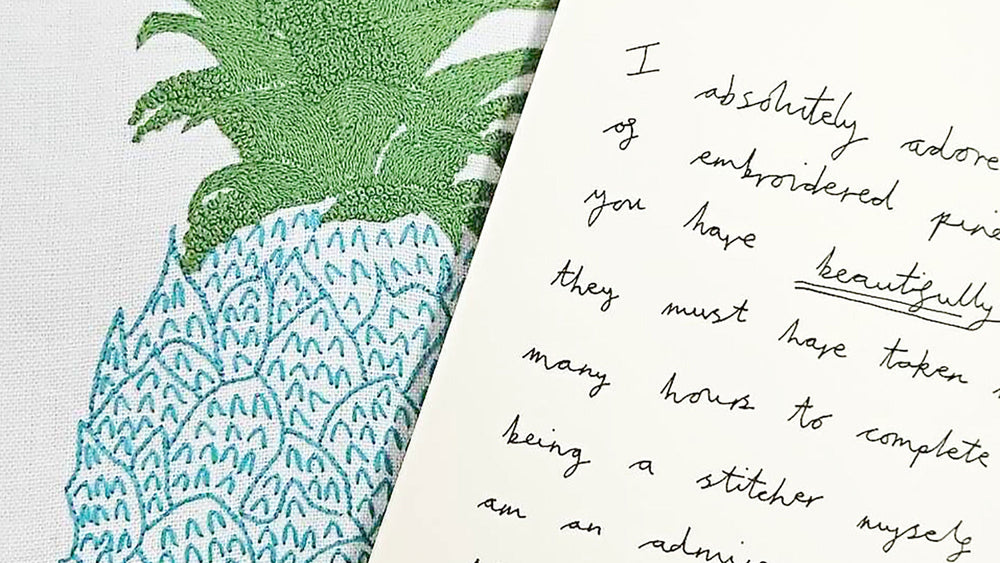 I absolutely adore
of embroidered pine
you have beautifully
they must have taken
many hours to complete
being a stitcher myself
am an admi